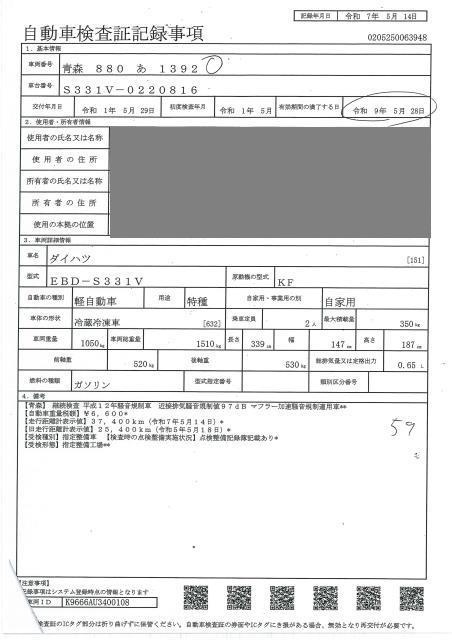 記録年月日 令和 7年 5月 14日
自動車検査証記録事項
0205250063948
1.基本情報
車両番号 青森 880 あ 1392
車台番号 S331V-0220816
交付年月日 令和 1年 5月 29日 初度検査年月 令和 1年 5月 有効期間の満了する日 令和 9年 5月 28日
2.使用者・所有者情報
使用者の氏名又は名称
使用者の住所
所有者の氏名又は名称
所有者の住所
使用の本拠の位置
3.車両詳細情報
車名 ダイハツ [151]
型式 EBD-S331V 原動機の型式 KF
自動車の種別 軽自動車 用途 特種 自家用・事業用の別 自家用
車体の形状 冷蔵冷凍車 [632] 乗車定員 2人 最大積載量 350kg
車両重量 1050kg 車両総重量 1510kg 長さ 339cm 幅 147cm 高さ 187cm
前軸重 520kg 後軸重 530kg 総排気量又は定格出力 0.65 L
燃料の種類 ガソリン 型式指定番号 類別区分番号
4.備考
【青森】 継続検査 平成12年騒音規制車 近接排気騒音規制値97dB マフラー加速騒音規制適用車**
【自動車重量税額】¥6,600*
【走行距離計表示値】37,400km(令和7年5月14日)*
【旧走行距離計表示値】25,400km(令和5年5月18日)*
【受検種別】指定整備車 【検査時の点検整備実施状況】点検整備記録簿記載あり*
【受検形態】指定整備工場**
59
【注意事項】
記録事項はシステム登録時点の情報となります
車両ID K9666AU3400108
検査証のICタグ部分は折り曲げずに保管ください。自動車検査証の券面やICタグにき損がある場合、無効となり再交付が必要です。